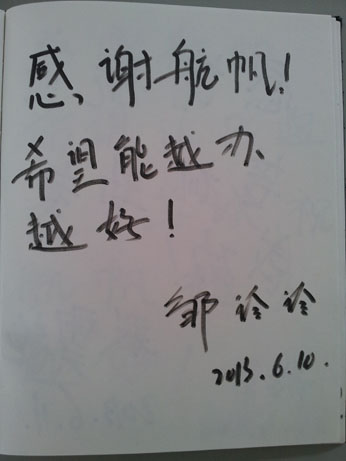 感谢航帆!
希望能越办
越好!
邹诠诠
2013.6.10.